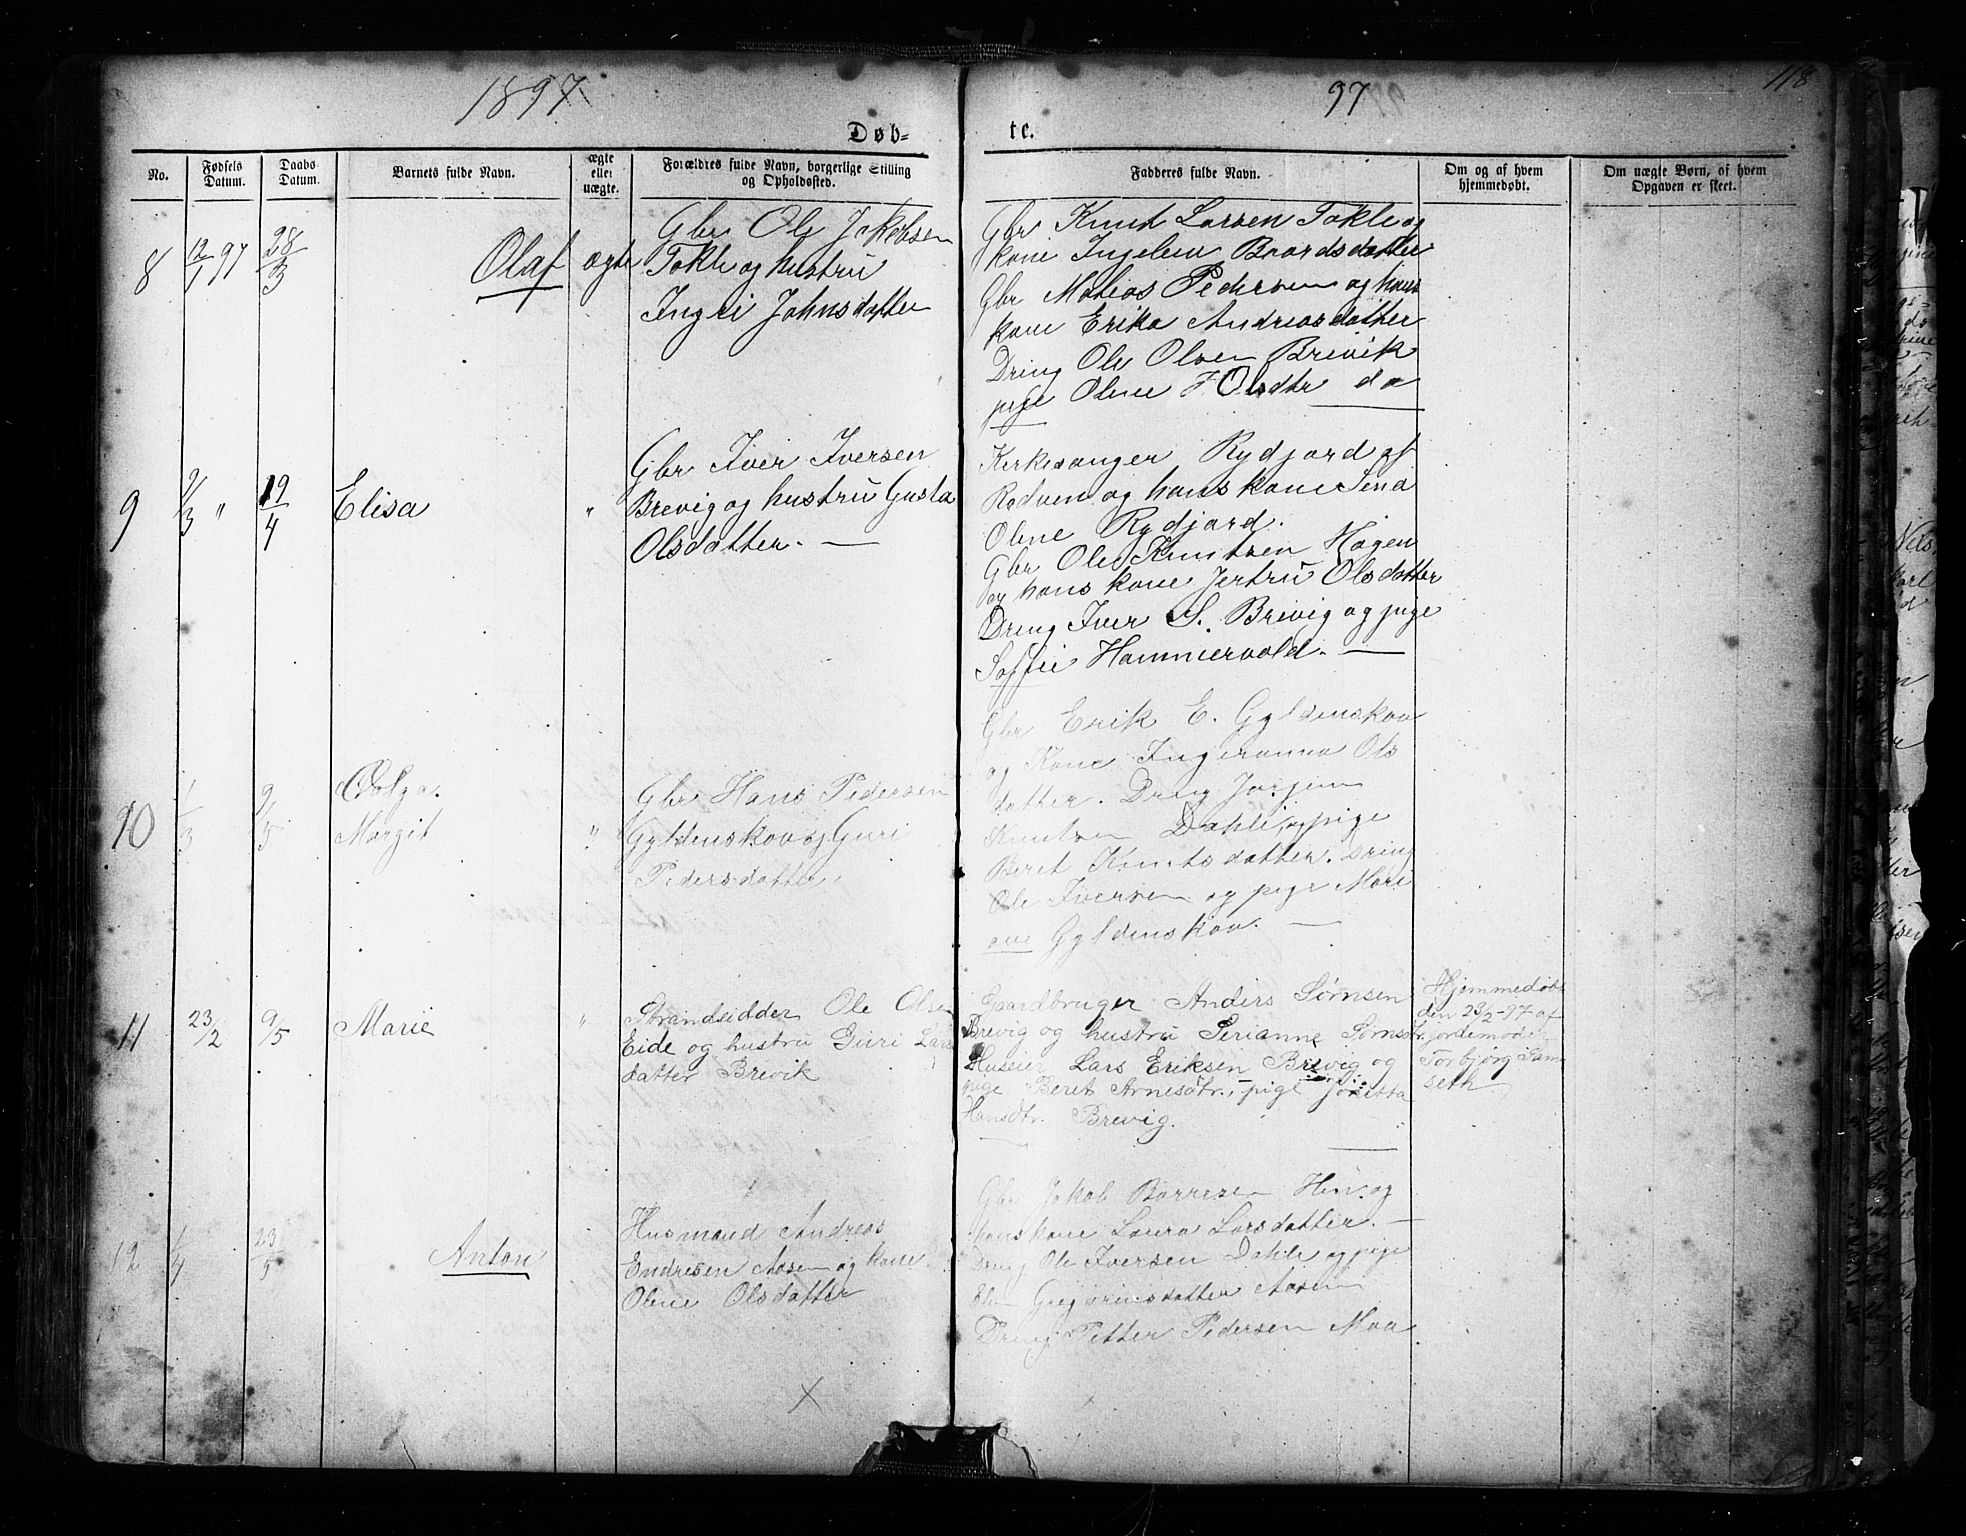 1897
97
118
Døb-
te.
No.
Fødsels Datum.
Daabs Datum.
Barnets fulde Navn.
ægte eller uægte.
Forældres fulde Navn, borgerlige Stilling og Opholdssted.
Fadderes fulde Navn.
Om og af hvem hjemmedøbt.
Om uægte Børn, af hvem Opgaven er skeet.
8
12/1 97
28/3
Olaf
ægte
Gbr Ole Jakobsen
Tokle og hustru
Ingri Johnsdatter
Gbr Knut Larsen Tokle og
kone Ingelev Baardsdatter
Gbr Matias Pedersen og hans
kone Erika Andreasdatter
Dreng Ole Olsen Brevik
pige Oline Olsdtr do
9
9/3 "
19/4
Elisa
"
Gbr Iver Iversen
Brevig og hustru Gusta
Olsdatter. —
Kirkesanger Rydjord af
Rødven og hans kone Sina
Oline Rydjord.
Gbr Ole Knutsen Hagen
og hans kone Jertru Olsdatter
Dreng Iver S. Brevig og pige
Soffie Hammervold. —
10
1/3
9/5
Olga
Margit
"
Gbr Hans Pedersen
Gyldenskov og Guri
Pedersdatter
Gbr Erik E. Gyldenskov
og Kone Ingeranna Ols
datter. Dreng Jørgen
Knutsen Dahle, og pige
Beret Knutsdatter. Dreng
Ole Iversen og pige Mari
ane Gyldenskov. —
11
23/2
9/5
Marie
"
Strandsidder Ole Olsen
Eide og hustru Guri Lars
datter Brevik
Gaardbruger Anders Sørnsen
Brevig og hustru Perianne Sørnsdtr.
Huseier Lars Eriksen Brevig og
pige Beret Arnesdtr., pige Josetta
Hansdtr. Brevig.
Hjemmedøbt
den 23/2-97 af
jordemoder
Torbjørg Sam
seth
12
1/4
23/5
Anton
Husmand Andreas
Endresen Aasen og kone
Oline Olsdatter
Gbr Jakob Børresen Hen og
hans kone Laura Larsdatter. —
Dreng Ole Iversen Dahle og pige
Elen Gregoriusdatter Aasen
Dreng Petter Pedersen Moa